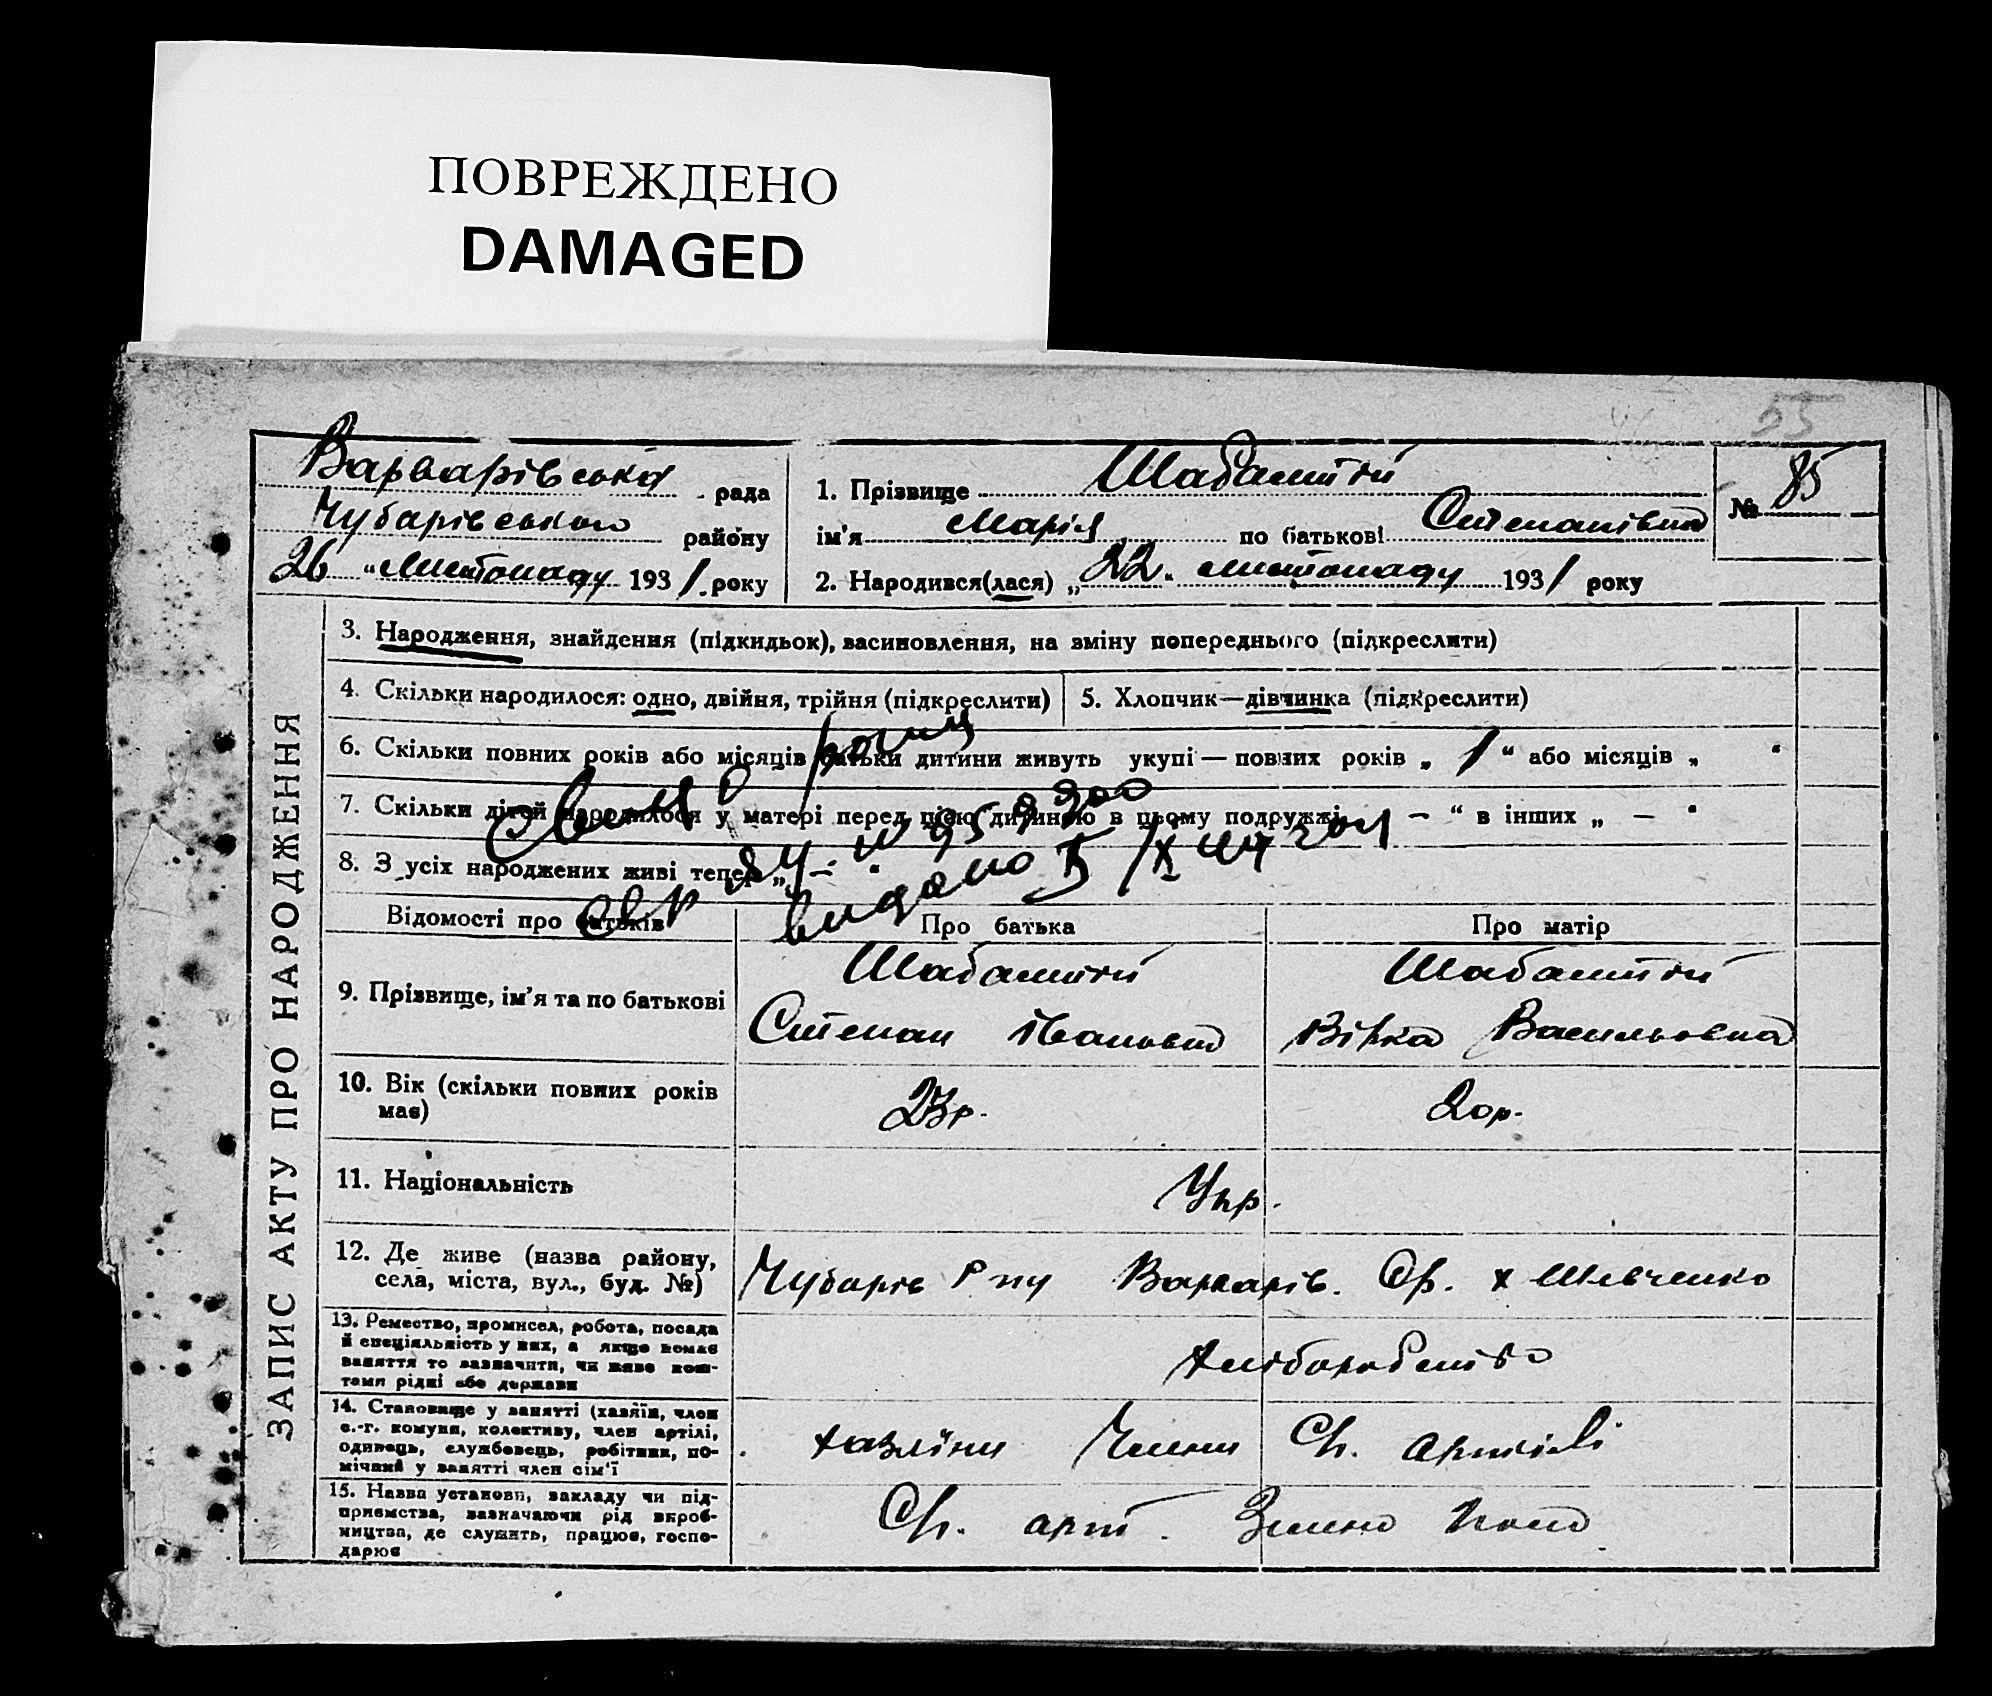 ПОВРЕЖДЕНО
DAMAGED
55
Варварівська рада
Чубарівського району
26 „Листопаду 1931 року
1. Прізвище Шабаштій
ім'я Марія по батькові Степанівна
2. Народився(лася) „22“ листопаду 1931 року
№ 85
ЗАПИС АКТУ ПРО НАРОДЖЕННЯ
3. Народження, знайдення (підкидьок), васиновлення, на зміну попереднього (підкреслити)
4. Скільки народилося: одно, двійня, трійня (підкреслити)
5. Хлопчик—дівчинка (підкреслити)
6. Скільки повних років або місяців батьки дитини живуть укупі — повних років „ 1 “ або місяців „ “
7. Скільки дітей народилося у матері перед цією дитиною в цьому подружжі — “ в інших „ — “
8. З усіх народжених живі тепер „ — “
видано 5/IX
Відомості про батьків
Про батька
Про матір
9. Прізвище, ім'я та по батькові
Шабаштій
Степан Іванович
Шабаштій
Вірка Васильовна
10. Вік (скільки повних років має)
23р.
20р.
11. Національність
Укр.
12. Де живе (назва району, села, міста, вул., буд. №)
Чубарів Р ну Варварів. С/р. х Шевченко
13. Ремество, промисел, робота, посада
й спеціяльність у них, а якщо немає
заняття то зазначити, чи живе кош-
тами рідні або держави
хліборобство
14. Становище у занятті (хазяїн, член
с.-г. комуни, колективу, член артілі,
одинець, службовець, робітник, по-
мічний у занятті член сім'ї
хазяїни Члени Сг. артілі
15. Назва установи, закладу чи під-
приємства, зазначаючи рід вироб-
ництва, де служить, працює, госпо-
дарює
Сг. арт.